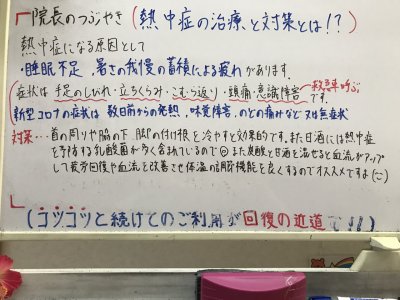 院長のつぶやき(熱中症の治療、と対策とは!?)
熱中症になる原因として
・睡眠不足、暑さの我慢の蓄積による疲れがあります。
(症状は手足のしびれ・立ちくらみ・こむら返り・頭痛・意識障害 → 救急車呼ぶ です。
(新型コロナの症状は 数日前からの発熱、味覚障害、のどの痛みなど 又は無症状
対策… 首の周りや脇の下、脚の付け根を冷やすと効果的です。また甘酒には熱中症
を予防する乳酸菌が多く含まれているので◎また炭酸と甘酒を混ぜると血流がアップ
して疲労回復や血流を改善させ体温の調節機能を良くするのでオススメですよ(ニ)
(コツコツと続けてのご利用が回復の近道です!!)